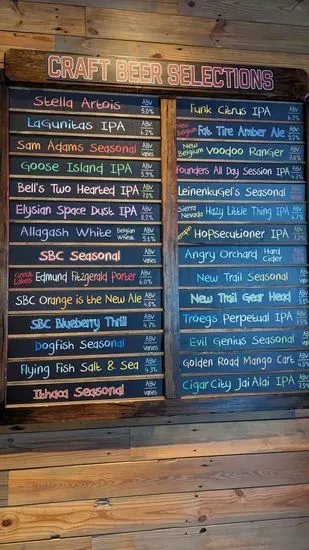 CRAFT BEER SELECTIONS
Stella Artois ABV 5.0%
Lagunitas IPA ABV 6.2%
Sam Adams Seasonal ABV Varies
Goose Island IPA ABV 5.9%
Bell's Two Hearted IPA ABV 7.0%
Elysian Space Dust IPA ABV 8.2%
Allagash White Belgian Wheat ABV 5.1%
SBC Seasonal ABV Varies
Great Lakes Edmund Fitzgerald Porter ABV 6.0%
SBC Orange is the New Ale ABV 4.8%
SBC Blueberry Thrill ABV
Dogfish Seasonal ABV Varies
Flying Fish Salt & Sea ABV 4.3%
Ithaca Seasonal ABV Varies
Funk Citrus IPA ABV
New Belgium Fat Tire Amber Ale ABV 5.2%
New Belgium Voodoo Ranger ABV 7.0%
Founders All Day Session IPA ABV 4.7%
Leinenkugel's Seasonal ABV Varies
Sierra Nevada Hazy Little Thing ABV 6.7%
Hopsecutioner IPA ABV 7.3%
Angry Orchard Hard Cider ABV 5.0%
New Trail Seasonal ABV Varies
New Trail Gear Head ABV
Troegs Perpetual IPA ABV 7.5%
Evil Genius Seasonal ABV Varies
Golden Road Mango Cart ABV 4.0%
Cigar City Jai Alai IPA ABV 7.5%